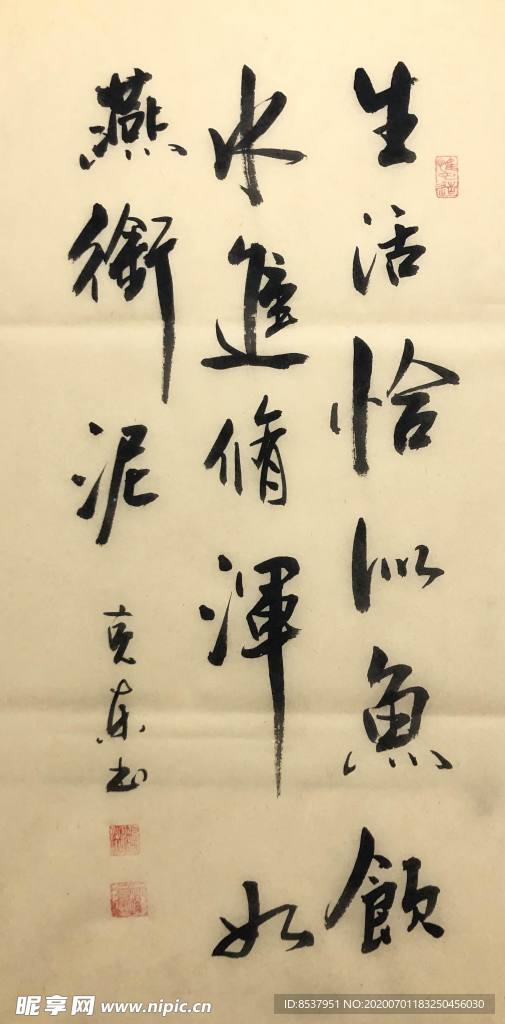 生活恰似魚飲
水進脩渾如
燕銜泥
克東书
昵享网 www.nipic.cn
ID:8537951 NO:20200701183250456030